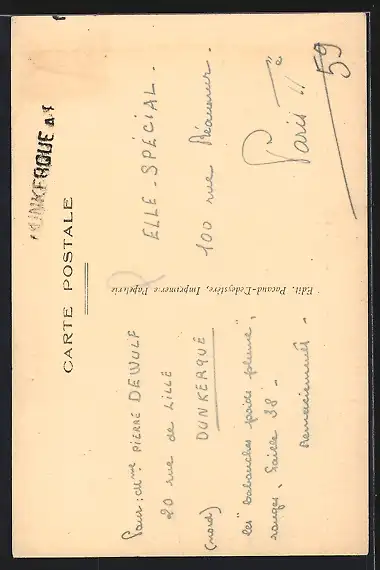 DUNKERQUE A.T
CARTE POSTALE
Edit. Pacaud-Dedeystère, Imprimerie Papeterie
Pour : Mme PIERRE DEWULF
20 rue de LILLE
DUNKERQUE
(nord)
les "babouches poids plume",
rouges. Taille 38 -
Remerciements -
ELLE-SPÉCIAL.
100 rue Réaumur.
Paris IIe
59